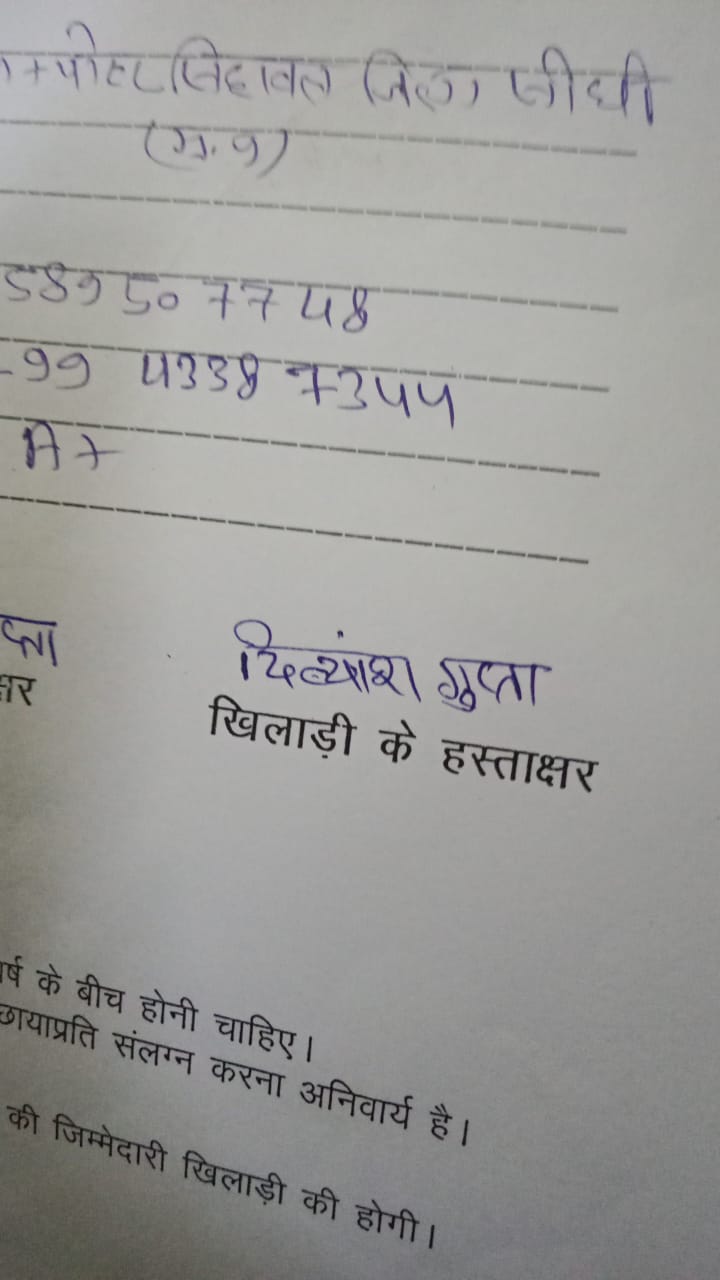 +पोस्ट सिहावल जिला सीधी
(म.प्र)
589507748
99 4338 7344
A+
प्ता
दिव्यांश गुप्ता
क्षर
खिलाड़ी के हस्ताक्षर
र्ष के बीच होनी चाहिए।
छायाप्रति संलग्न करना अनिवार्य है।
की जिम्मेदारी खिलाड़ी की होगी।